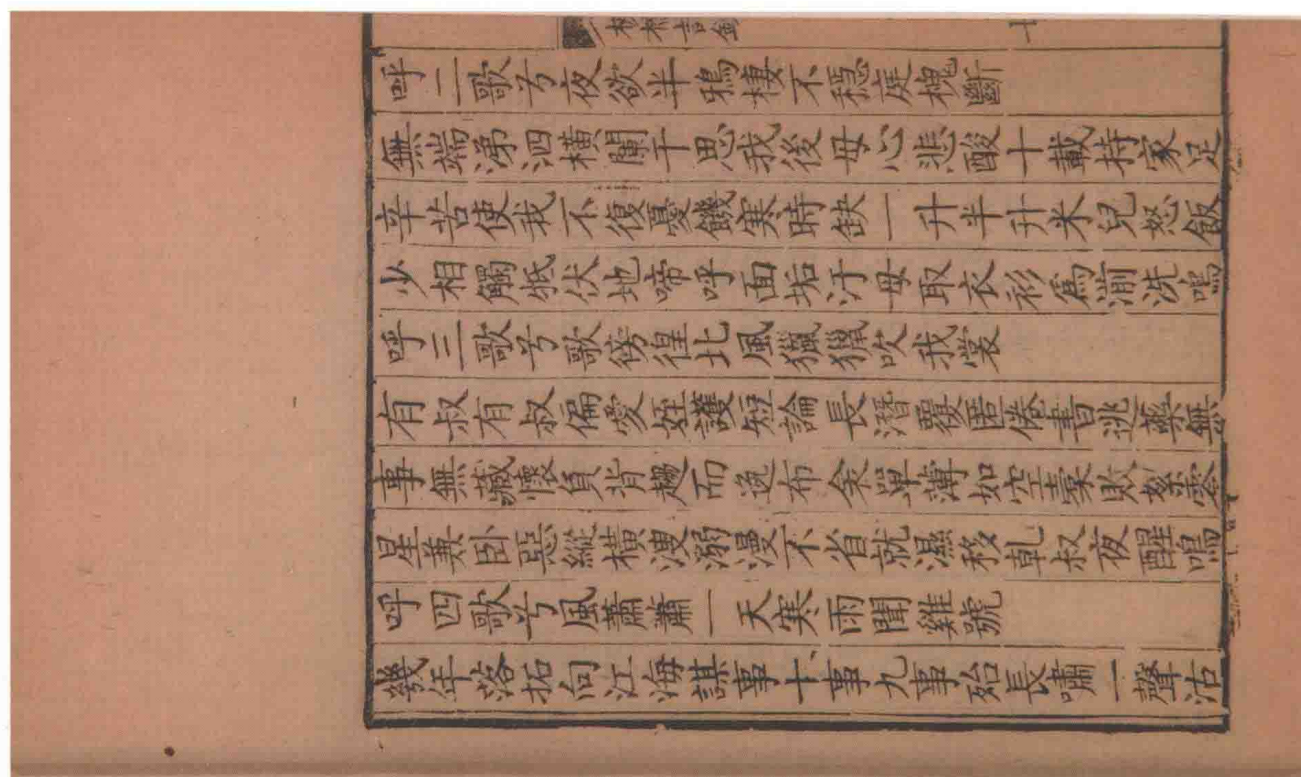 呼二歌兮夜欲半鴉棲不穩庭槐斷
無端涕泗橫闌干思我後母心悲酸十載持家足
辛苦使我不復憂饑寒時缺一升半升米兒怒飯
少相觸牴伏地啼呼面垢汙母取衣衫爲湔洗嗚
呼三歌兮歌傍徨北風獵獵吹我裳
有叔有叔偏愛姪護短論長潛覆匿倦書逃藥無
事無藏懷負背趨而逸布衾單薄如空橐敗絮零
星兼卧惡縱橫溲溺漫不省就濕移乾叔夜醒嗚
呼四歌兮風蕭蕭一天寒雨聞雞號
幾年落拓向江海謀事十事九事殆長嘯一聲沽